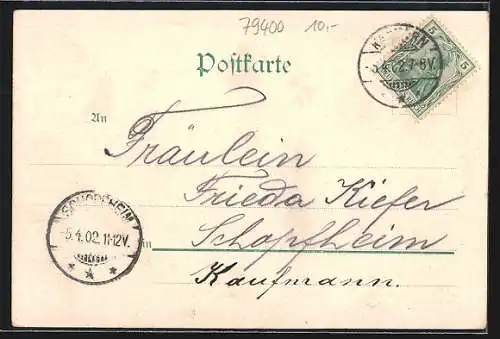 79400 10,-
Postkarte
5 5
5.4.02.7-8V.
An
Fräulein
Frieda Kiefer
SCHOPFHEIM
5.4.02.11-12V.
in Schopfheim
Kaufmann.